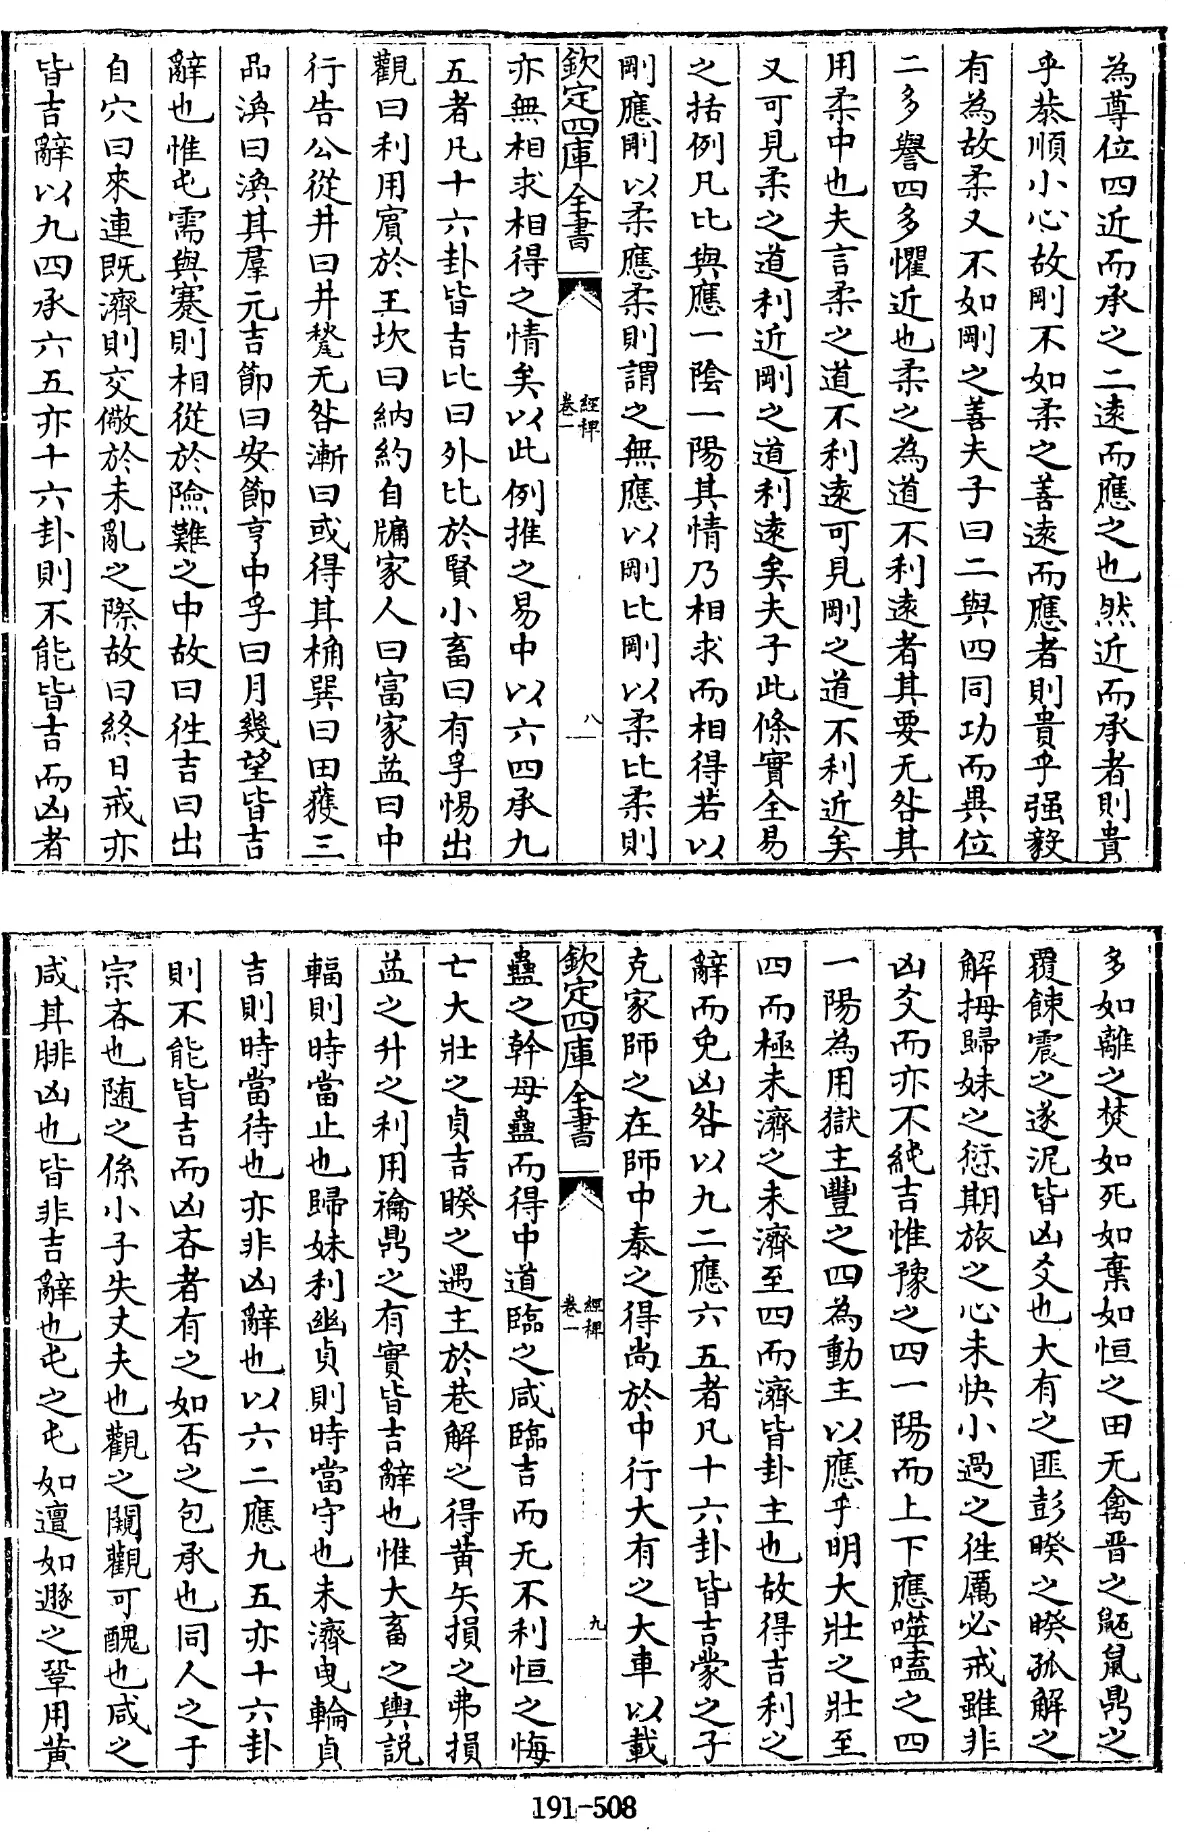 為尊位四近而承之二逺而應之也然近而承者則貴
乎恭順小心故剛不如柔之善逺而應者則貴乎强毅
有為故柔又不如剛之善夫子曰二與四同功而異位
二多譽四多懼近也柔之為道不利逺者其要无咎其
用柔中也夫言柔之道不利逺可見剛之道不利近矣
又可見柔之道利近剛之道利逺矣夫子此條實全易
之括例凡比與應一陰一陽其情乃相求而相得若以
剛應剛以柔應柔則謂之無應以剛比剛以柔比柔則
欽定四庫全書 經稗 卷一 八
亦無相求相得之情矣以此例推之易中以六四承九
五者凡十六卦皆吉比曰外比於賢小畜曰有孚惕出
觀曰利用賓於王坎曰納約自牖家人曰富家益曰中
行告公從井曰井甃无咎漸曰或得其桷巽曰田獲三
品渙曰渙其羣元吉節曰安節亨中孚曰月幾望皆吉
辭也惟屯需與蹇則相從於險難之中故曰往吉曰出
自穴曰來連既濟則交儆於未亂之際故曰終日戒亦
皆吉辭以九四承六五亦十六卦則不能皆吉而凶者
多如離之焚如死如棄如恒之田无禽晉之鼫鼠鼎之
覆餗震之遂泥皆凶爻也大有之匪彭睽之睽孤解之
解拇歸妹之愆期旅之心未快小過之往厲必戒雖非
凶爻而亦不純吉惟豫之四一陽而上下應噬嗑之四
一陽為用獄主豐之四為動主以應乎明大壯之壯至
四而極未濟之未濟至四而濟皆卦主也故得吉利之
辭而免凶咎以九二應六五者凡十六卦皆吉蒙之子
克家師之在師中泰之得尚於中行大有之大車以載
欽定四庫全書 經稗 卷一 九
蠱之幹母蠱而得中道臨之咸臨吉而无不利恒之悔
亡大壯之貞吉睽之遇主於巷解之得黄矢損之弗損
益之升之利用禴鼎之有實皆吉辭也惟大畜之輿説
輻則時當止也歸妹利幽貞則時當守也未濟曳輪貞
吉則時當待也亦非凶辭也以六二應九五亦十六卦
則不能皆吉而凶吝者有之如否之包承也同人之于
宗吝也随之係小子失丈夫也觀之闚觀可醜也咸之
咸其腓凶也皆非吉辭也屯之屯如邅如遯之鞏用黄
191-508